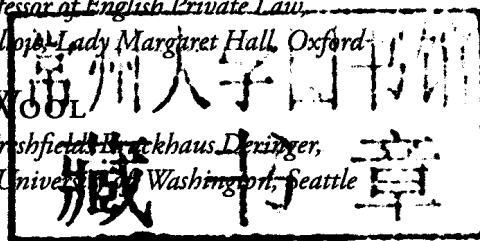 fessor of English Private Law,
llow, Lady Margaret Hall, Oxford
常州大学图书馆
WOOL
reshfields Bruckhaus Deringer,
University of Washington, Seattle
藏书章